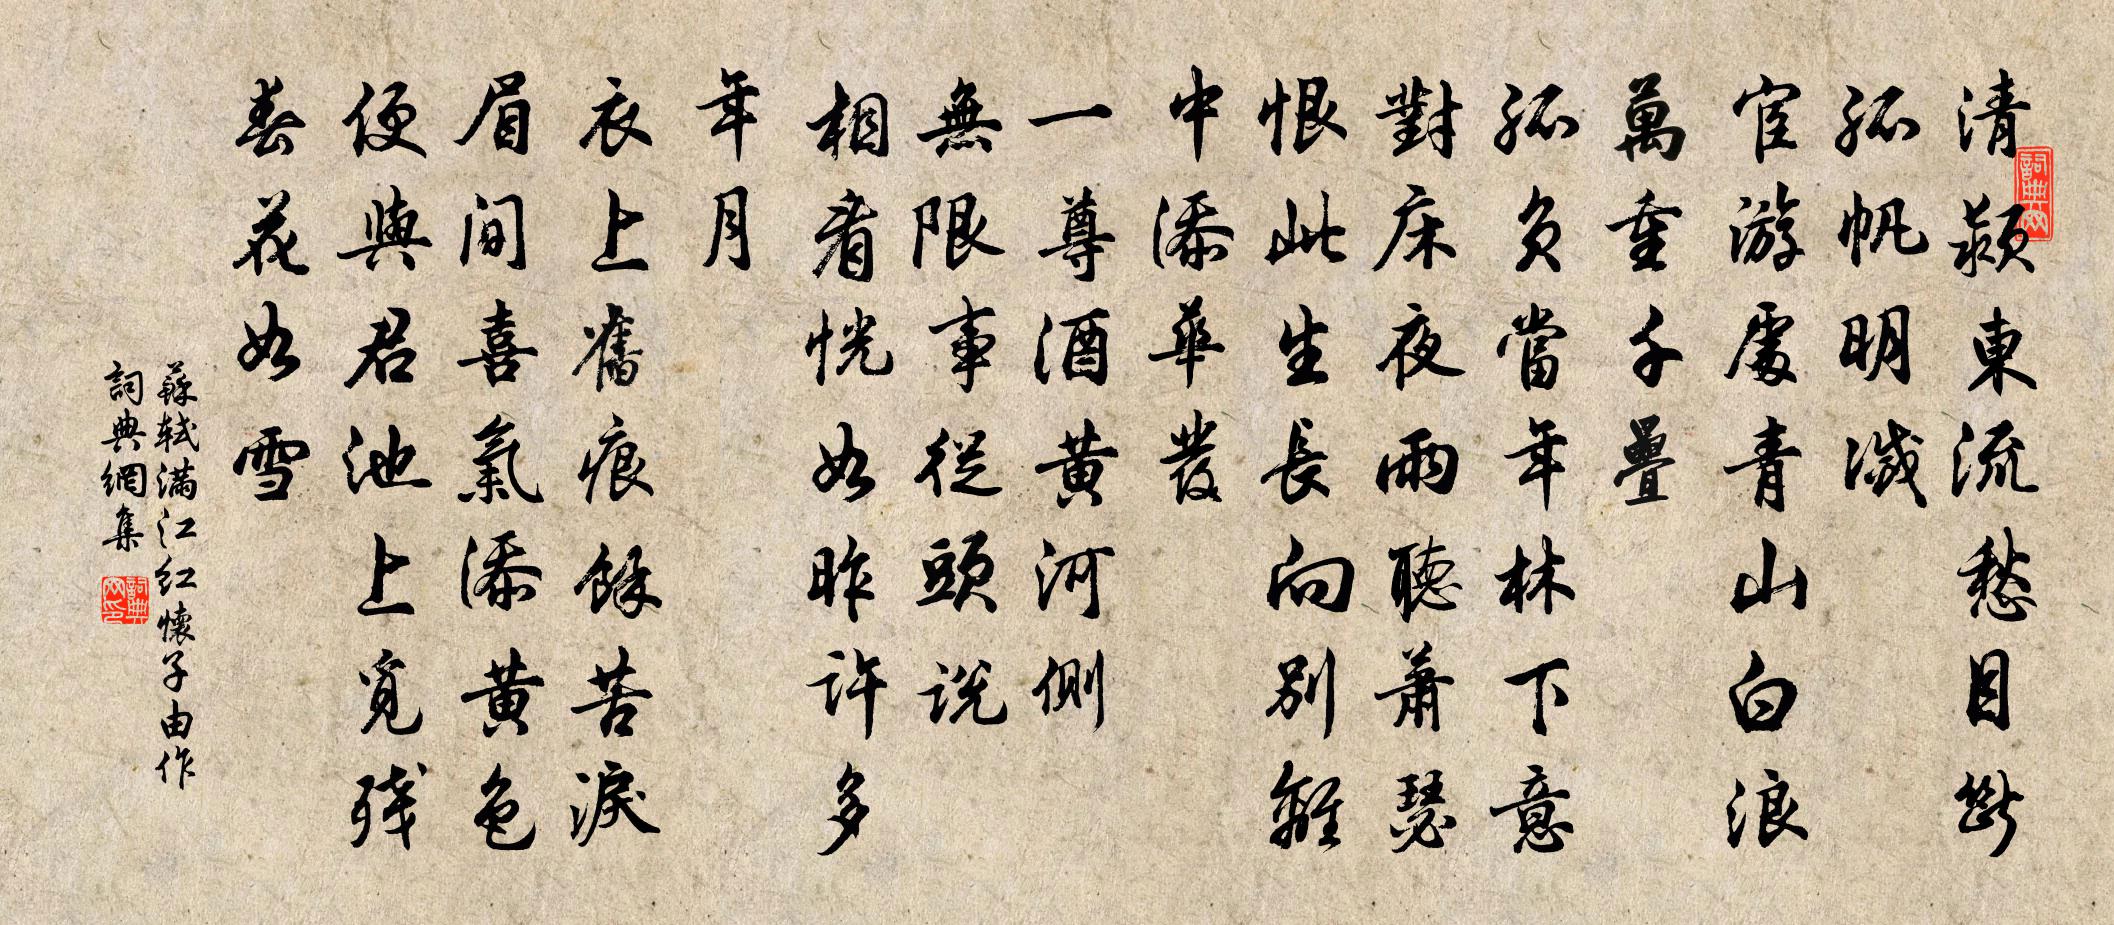 詞典網
清潁東流愁目斷
孤帆明滅
宦游處青山白浪
萬重千疊
孤負當年林下意
對床夜雨聽蕭瑟
恨此生長向別離
中添華發
一尊酒黃河側
無限事從頭說
相看恍如昨許多
年月
衣上舊痕餘苦淚
眉間喜氣添黃色
便與君池上覓殘
春花如雪
蘇軾滿江紅懷子由作
詞典網集
詞典网印